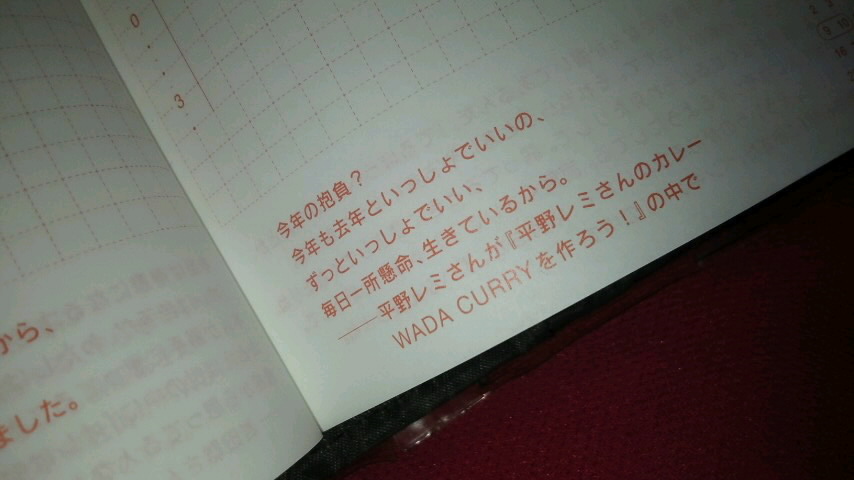 0
3
今年の抱負？
今年も去年といっしょでいいの、
ずっといっしょでいい、
毎日一所懸命、生きているから。
――平野レミさんが『平野レミさんのカレー
WADA CURRYを作ろう！』の中で
から、
ました。
9 10
16